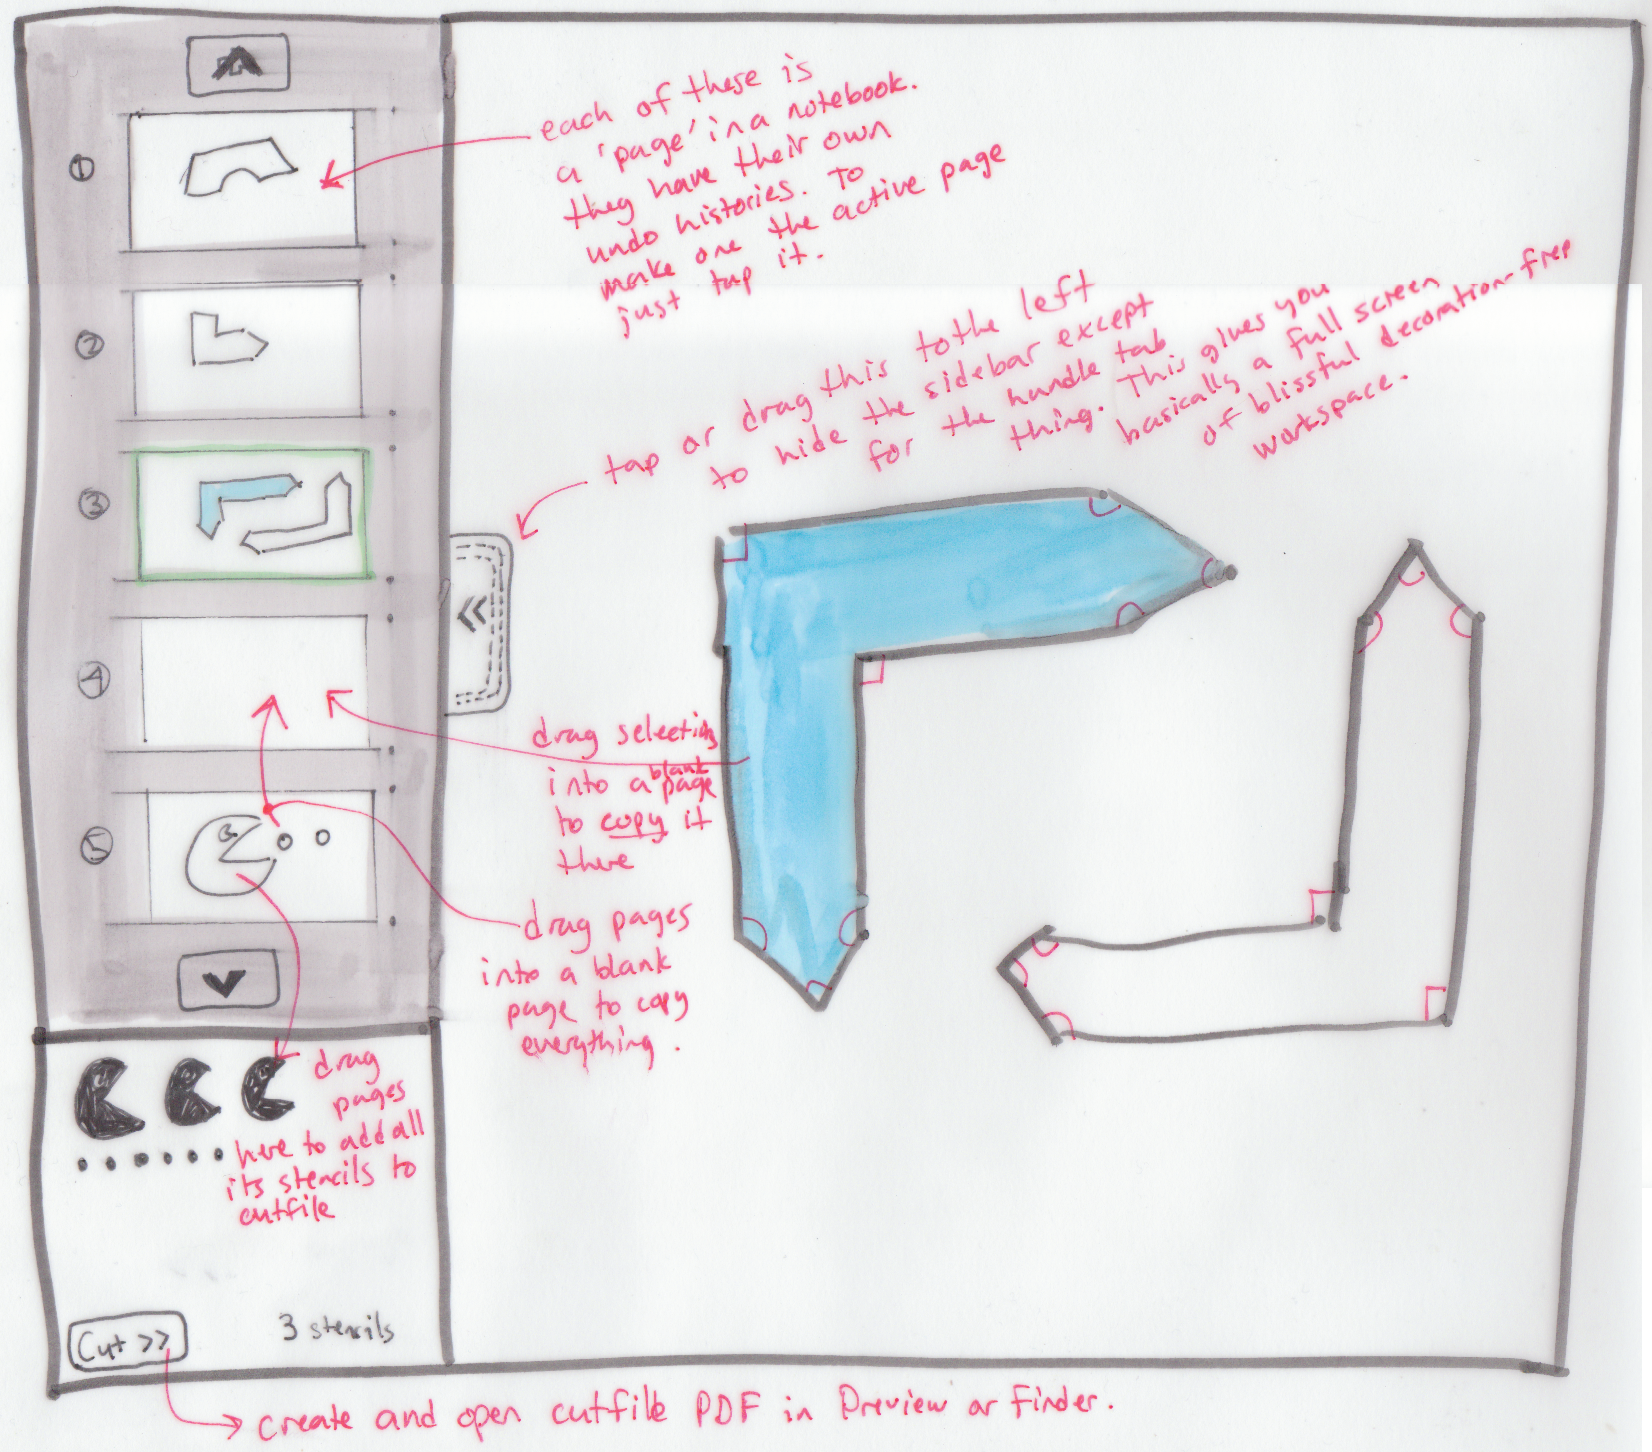 each of these is
a 'page' in a notebook.
they have their own
undo histories. To
make one the active page
just tap it.
tap or drag this to the left
to hide the sidebar except
for the handle tab
thing. This gives you
basically a full screen
of blissful decoration-free
workspace.
①
②
③
④
⑤
drag selection
into a blank page
to copy it
there
drag pages
into a blank
page to copy
everything.
drag
pages
here to add all
its stencils to
cutfile
3 stencils
Cut >>
create and open cutfile PDF in Preview or Finder.